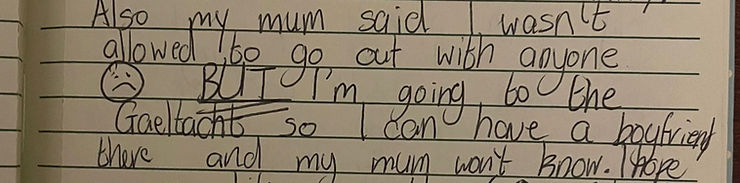 Also my mum said I wasn't
allowed to go out with anyone.
BUT I'm going to the
Gaeltacht so I can have a boyfriend
there and my mum won't know. I hope